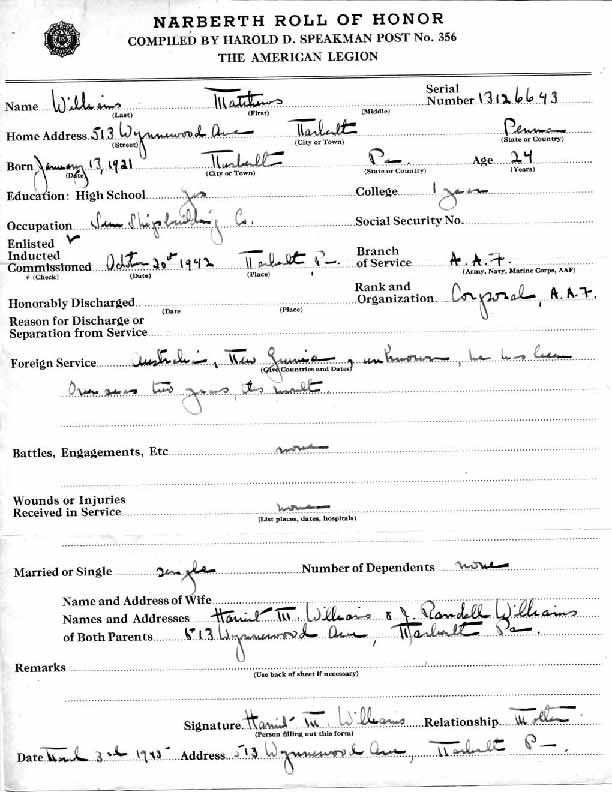 NARBERTH ROLL OF HONOR
COMPILED BY HAROLD D. SPEAKMAN POST No. 356
THE AMERICAN LEGION
Name Williams Matthews Serial Number 13126643
(Last) (First) (Middle)
Home Address 513 Wynnewood Ave Narberth Penna
(Street) (City or Town) (State or Country)
Born January 13, 1921 Narberth Pa— Age 24
(Date) (City or Town) (State or Country) (Years)
Education: High School yes College 1 year
Occupation Sun Shipbuilding Co. Social Security No.
Enlisted ✓
Inducted Branch
Commissioned October 20th 1942 Narberth Pa— of Service A.A.F.
✓ (Check) (Date) (Place) (Army, Navy, Marine Corps, AAF)
Rank and
Honorably Discharged Organization Corporal, A.A.F.
(Date (Place)
Reason for Discharge or
Separation from Service
Foreign Service Australia, New Guinea, & unknown, he has been
(Give Countries and Dates)
Overseas two years, this month
Battles, Engagements, Etc none
Wounds or Injuries
Received in Service none
(List places, dates, hospitals)
Married or Single single Number of Dependents none
Name and Address of Wife
Names and Addresses Harriet M. Williams & J. Randall Williams
of Both Parents 513 Wynnewood Ave, Narberth Pa.
Remarks
(Use back of sheet if necessary)
Signature Harriet M. Williams Relationship Mother
(Person filling out this form)
Date March 3rd 1945 Address 513 Wynnewood Ave, Narberth Pa—